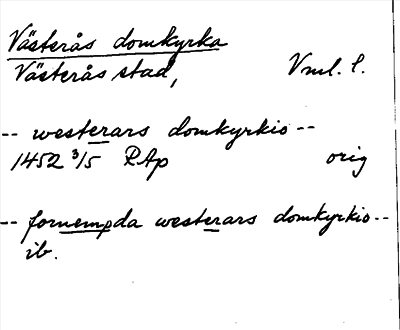 Västerås domkyrka
Västerås stad, Vml. l.
-- westerars domkyrkio --
1452 3/5 RAp orig
-- fornempda westerars domkyrkio --
ib.